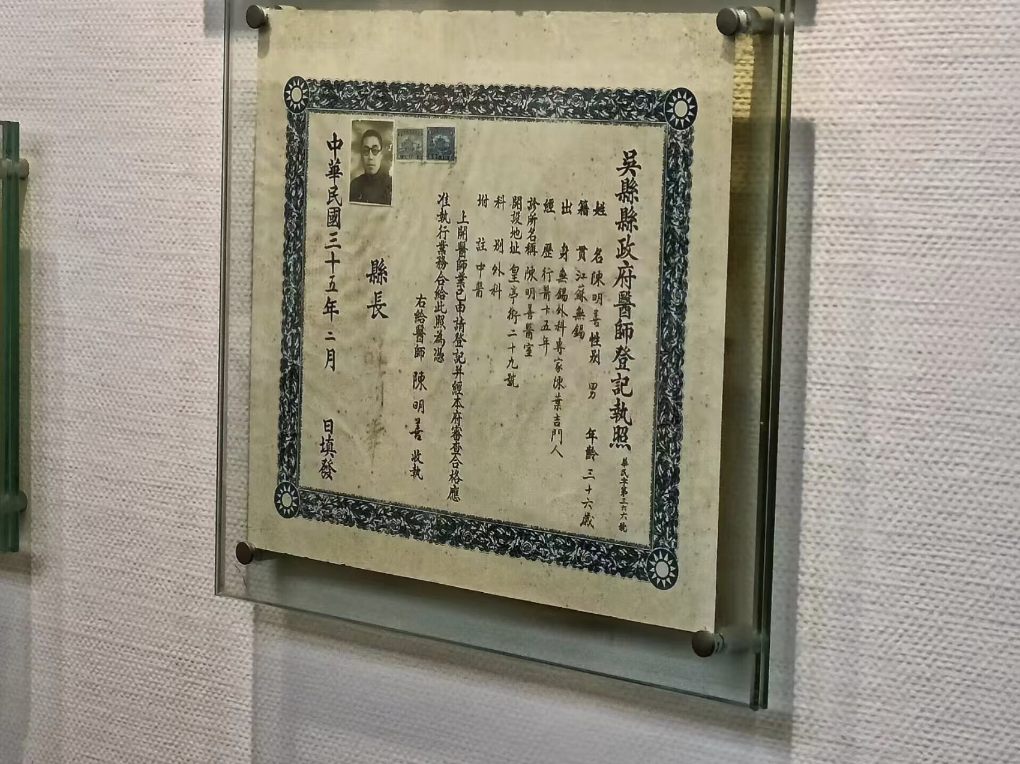 吳縣縣政府醫師登記執照
姓名陳明善性別 男 年齡三十六歲
籍貫江蘇無錫
出身無錫外科專家陳葉吉門人
經歷行醫十五年
診所名稱陳明善醫室
開設地址皇亭街二十九號
科別外科
坿註中醫
上開醫師業已申請登記并經本府審查合格應
准執行業務合給此照為憑
右給醫師陳明善收執
縣長
中華民國三十五年二月 日填發